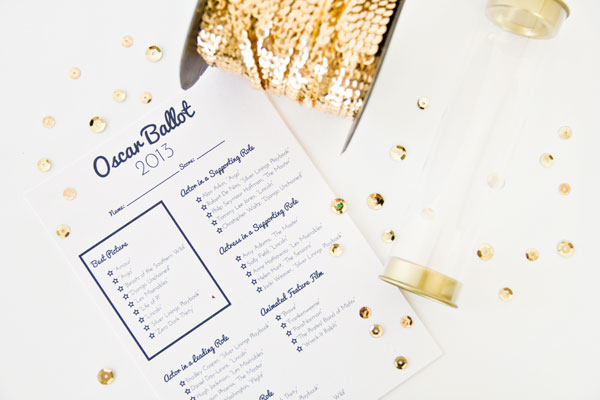 Oscar Ballot
2013
Name: Score:
Best Picture
"Amour"
"Argo"
"Beasts of the Southern Wild"
"Django Unchained"
"Les Misérables"
"Life of Pi"
"Lincoln"
"Silver Linings Playbook"
"Zero Dark Thirty"
Actor in a Supporting Role
Alan Arkin, "Argo"
Robert De Niro, "Silver Linings Playbook"
Philip Seymour Hoffman, "The Master"
Tommy Lee Jones, "Lincoln"
Christopher Waltz, "Django Unchained"
Actress in a Supporting Role
Amy Adams, "The Master"
Sally Field, "Lincoln"
Anne Hathaway, "Les Misérables"
Helen Hunt, "The Sessions"
Jacki Weaver, "Silver Linings Playbook"
Animated Feature Film
"Brave"
"Frankenweenie"
"ParaNorman"
"The Pirates! Band of Misfits"
"Wreck it Ralph"
Actor in a Leading Role
Bradley Cooper, "Silver Linings Playbook"
Daniel Day-Lewis, "Lincoln"
Hugh Jackman, "Les Misérables"
Phoenix, "The Master"
Washington, "Flight"